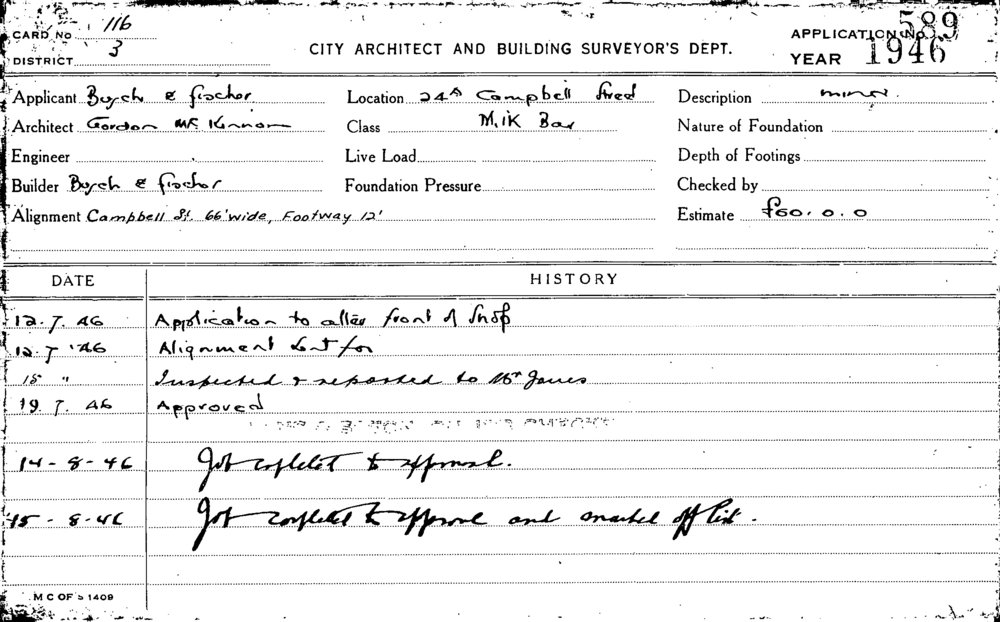 CARD No 116
DISTRICT 3
CITY ARCHITECT AND BUILDING SURVEYOR'S DEPT.
APPLICATION No. 589
YEAR 1946
Applicant Burch & Fischer
Location 24A Campbell Street
Description minor
Architect Gordon McKinnon
Class Milk Bar
Nature of Foundation
Engineer
Live Load
Depth of Footings
Builder Burch & Fischer
Foundation Pressure
Checked by
Alignment Campbell St. 66' wide, Footway 12'
Estimate £60.0.0
DATE HISTORY
12.7.46 Application to alter front of Shop
12.7.46 Alignment sent for
15 " Inspected & reported to Mr Jones
19.7.46 Approved
14-8-46 Job completed to approval.
15-8-46 Job completed to approval and marked off list.
M C OF S 1409